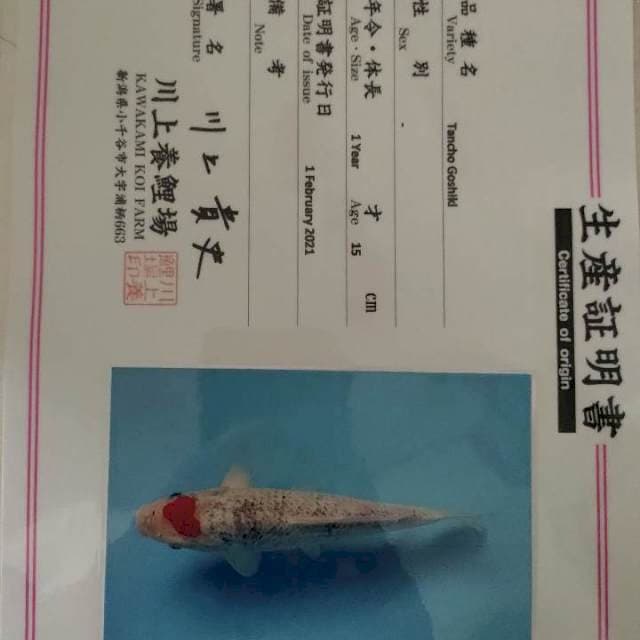 生産証明書
Certificate of origin
品種名
Variety
Tancho Goshiki
性別
Sex
-
年令・体長
Age・Size
1 Year 才 15 cm
Age
証明書発行日
Date of issue
1 February 2021
備考
Note
署名
Signature
川上貴史
川上養鯉場
KAWAKAMI KOI FARM
新潟県小千谷市大字浦柄603